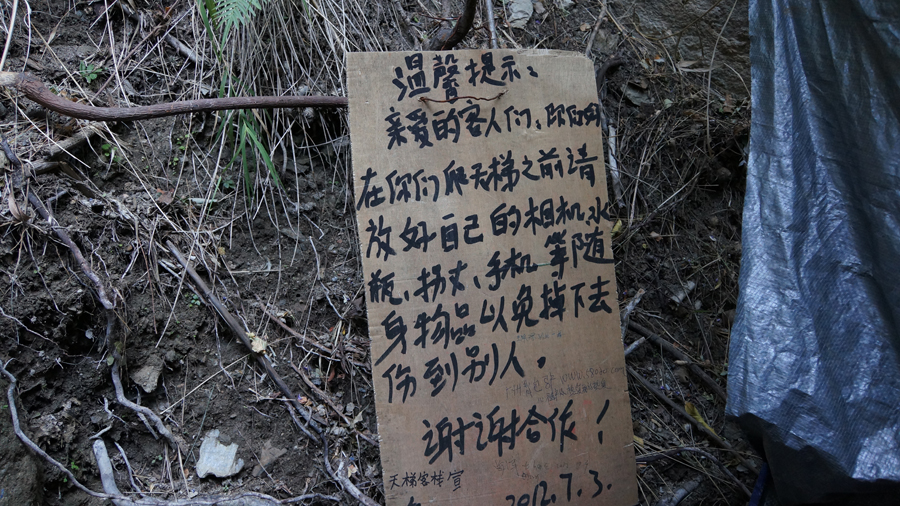 温馨提示:
亲爱的客人们:
在你们爬天梯之前请
放好自己的相机、水
瓶、拐杖、手机等随
身物品以免掉下去
伤到别人。
谢谢合作!
天梯客栈宣
2012.7.3.